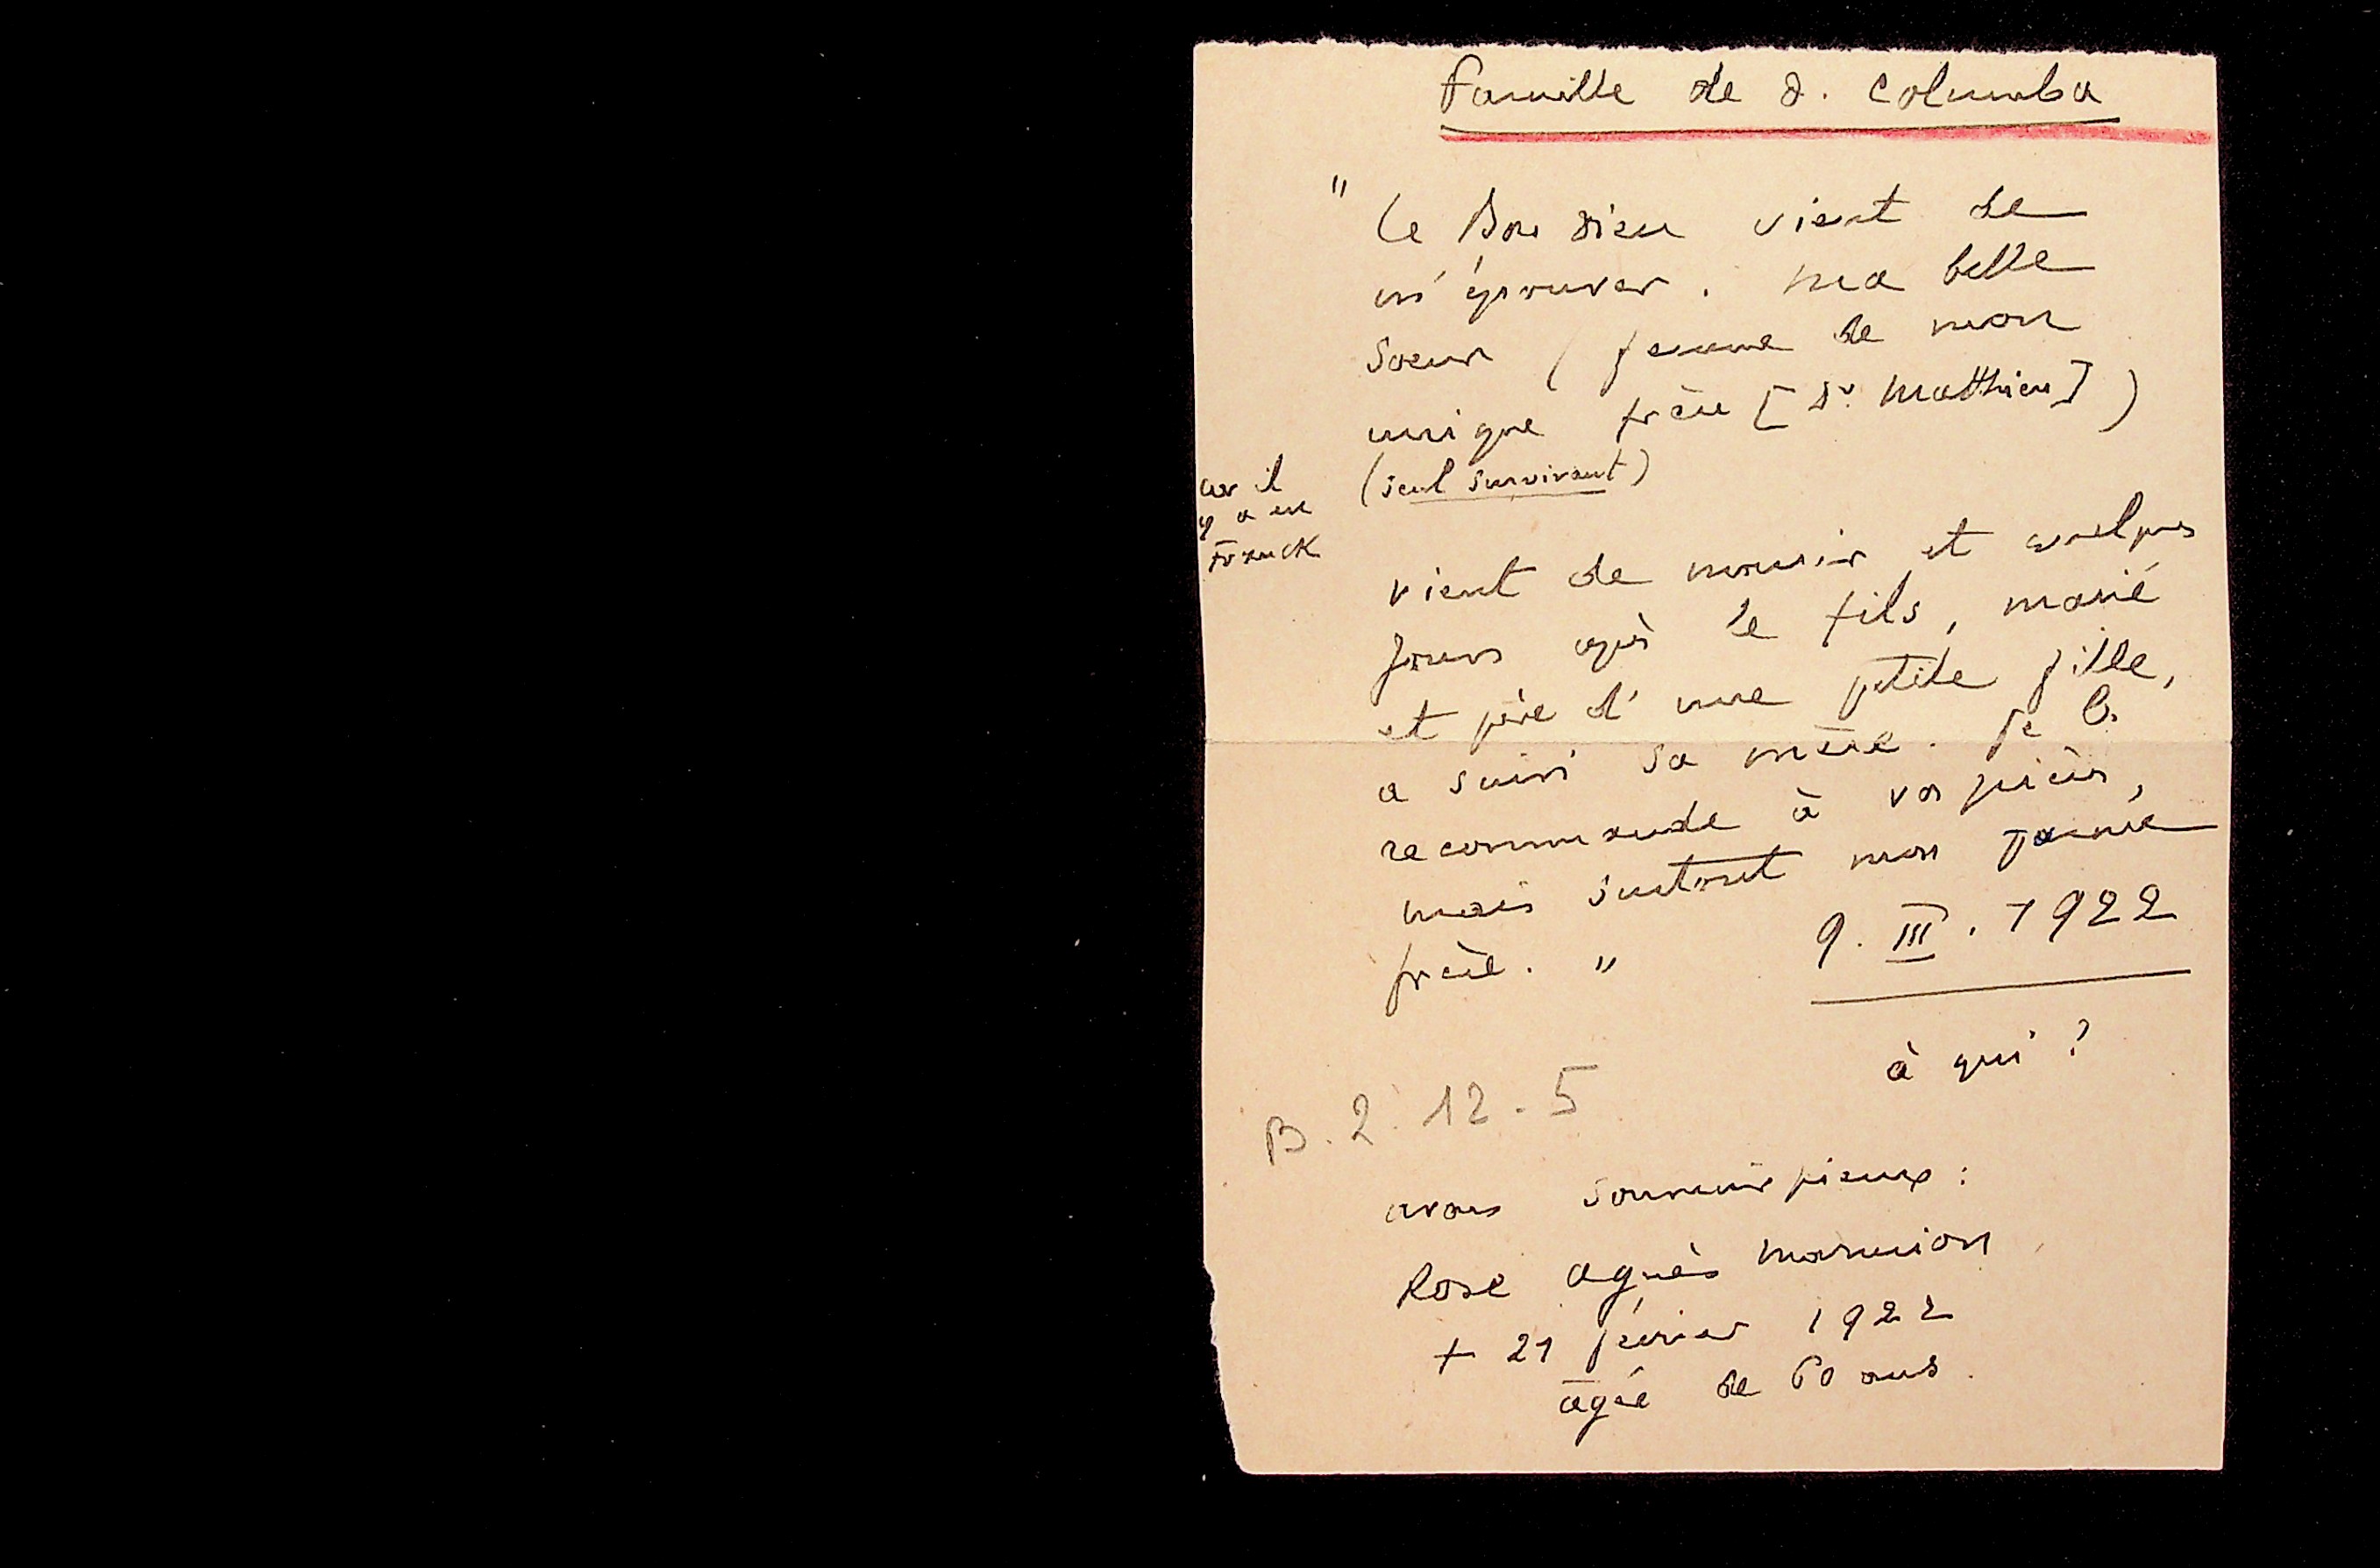 Famille de d. Columba
" Le Bon Dieu vient de
m'éprouver. Ma belle
soeur (femme de mon
unique frère [Dr. Matthieu])
(seul survivant)
car il
y a eu
Franck
vient de mourir et quelques
jours après le fils, marié
et père d'une petite fille,
a suivi sa mère. Je les
recommande à vos prières,
mais surtout mon pauvre
frère. "
9. III. 1922
à qui ?
B. 2. 12. 5
avons souvenir pieux :
Rose Agnès Marmion
+ 21 février 1922
agée de 60 ans.